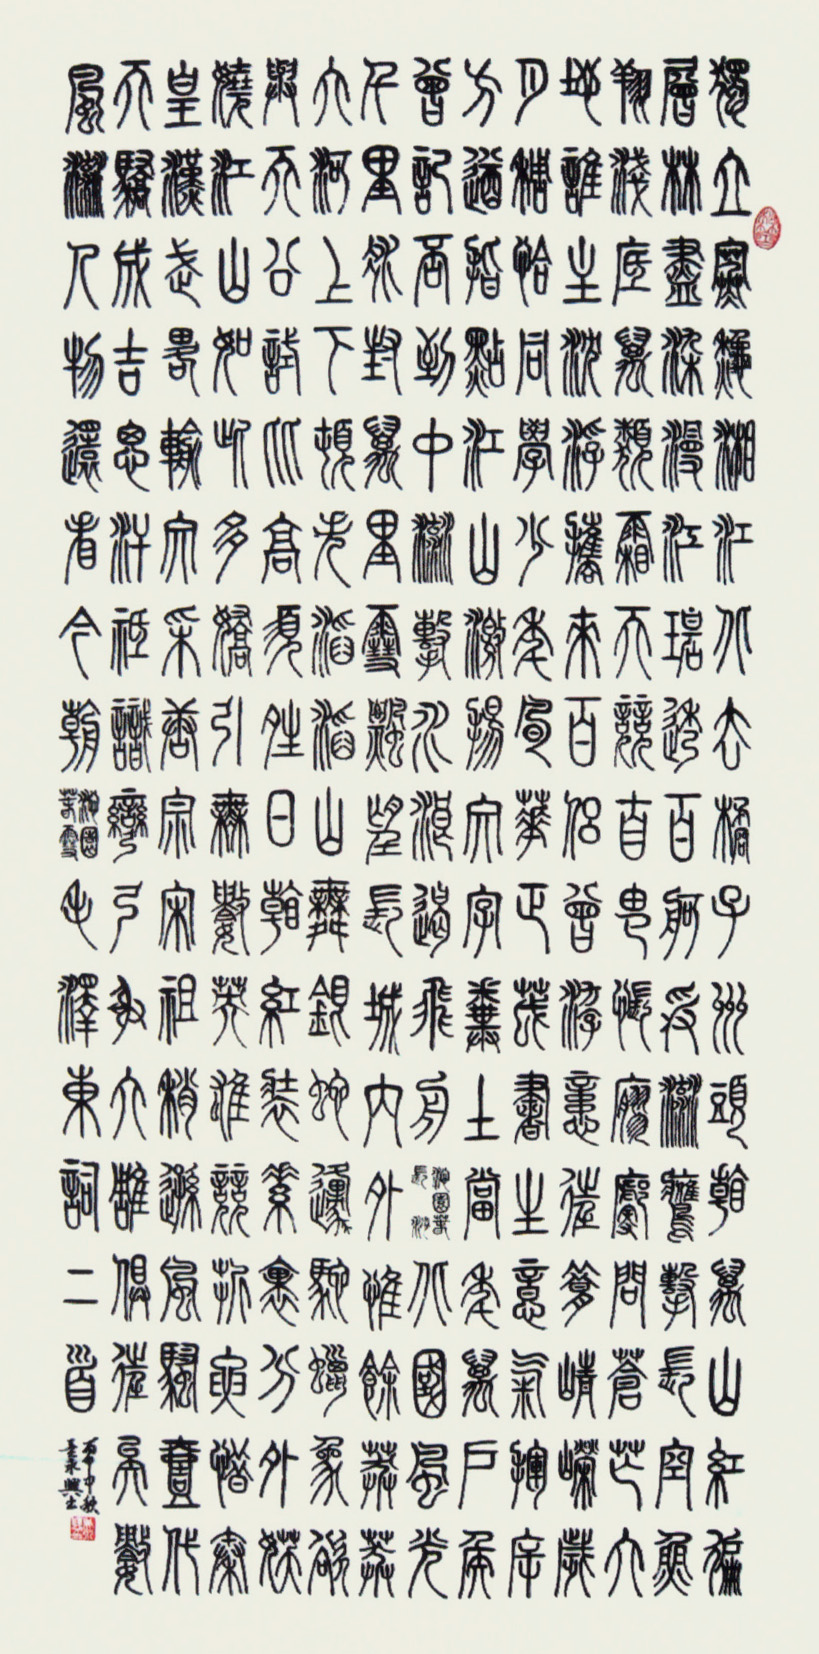 獨立寒秋湘江北去橘子洲頭看萬山紅遍
層林盡染漫江碧透百舸爭流鷹擊長空魚
翔淺底萬類霜天競自由悵寥廓問蒼茫大
地誰主沉浮攜來百侶曾游憶往昔崢嶸歲
月稠恰同學少年風華正茂書生意氣揮斥
方遒指點江山激揚文字糞土當年萬戶侯
曾記否到中流擊水浪遏飛舟沁園春長沙北國風光
千里冰封萬里雪飄望長城內外惟餘莽莽
大河上下頓失滔滔山舞銀蛇原馳蠟象欲
與天公試比高須晴日看紅裝素裹分外妖
嬈江山如此多嬌引無數英雄競折腰惜秦
皇漢武略輸文采唐宗宋祖稍遜風騷一代
天驕成吉思汗祇識彎弓射大雕俱往矣數
風流人物還看今朝沁園春雪毛澤東詞二首
丙申中秋
永興書